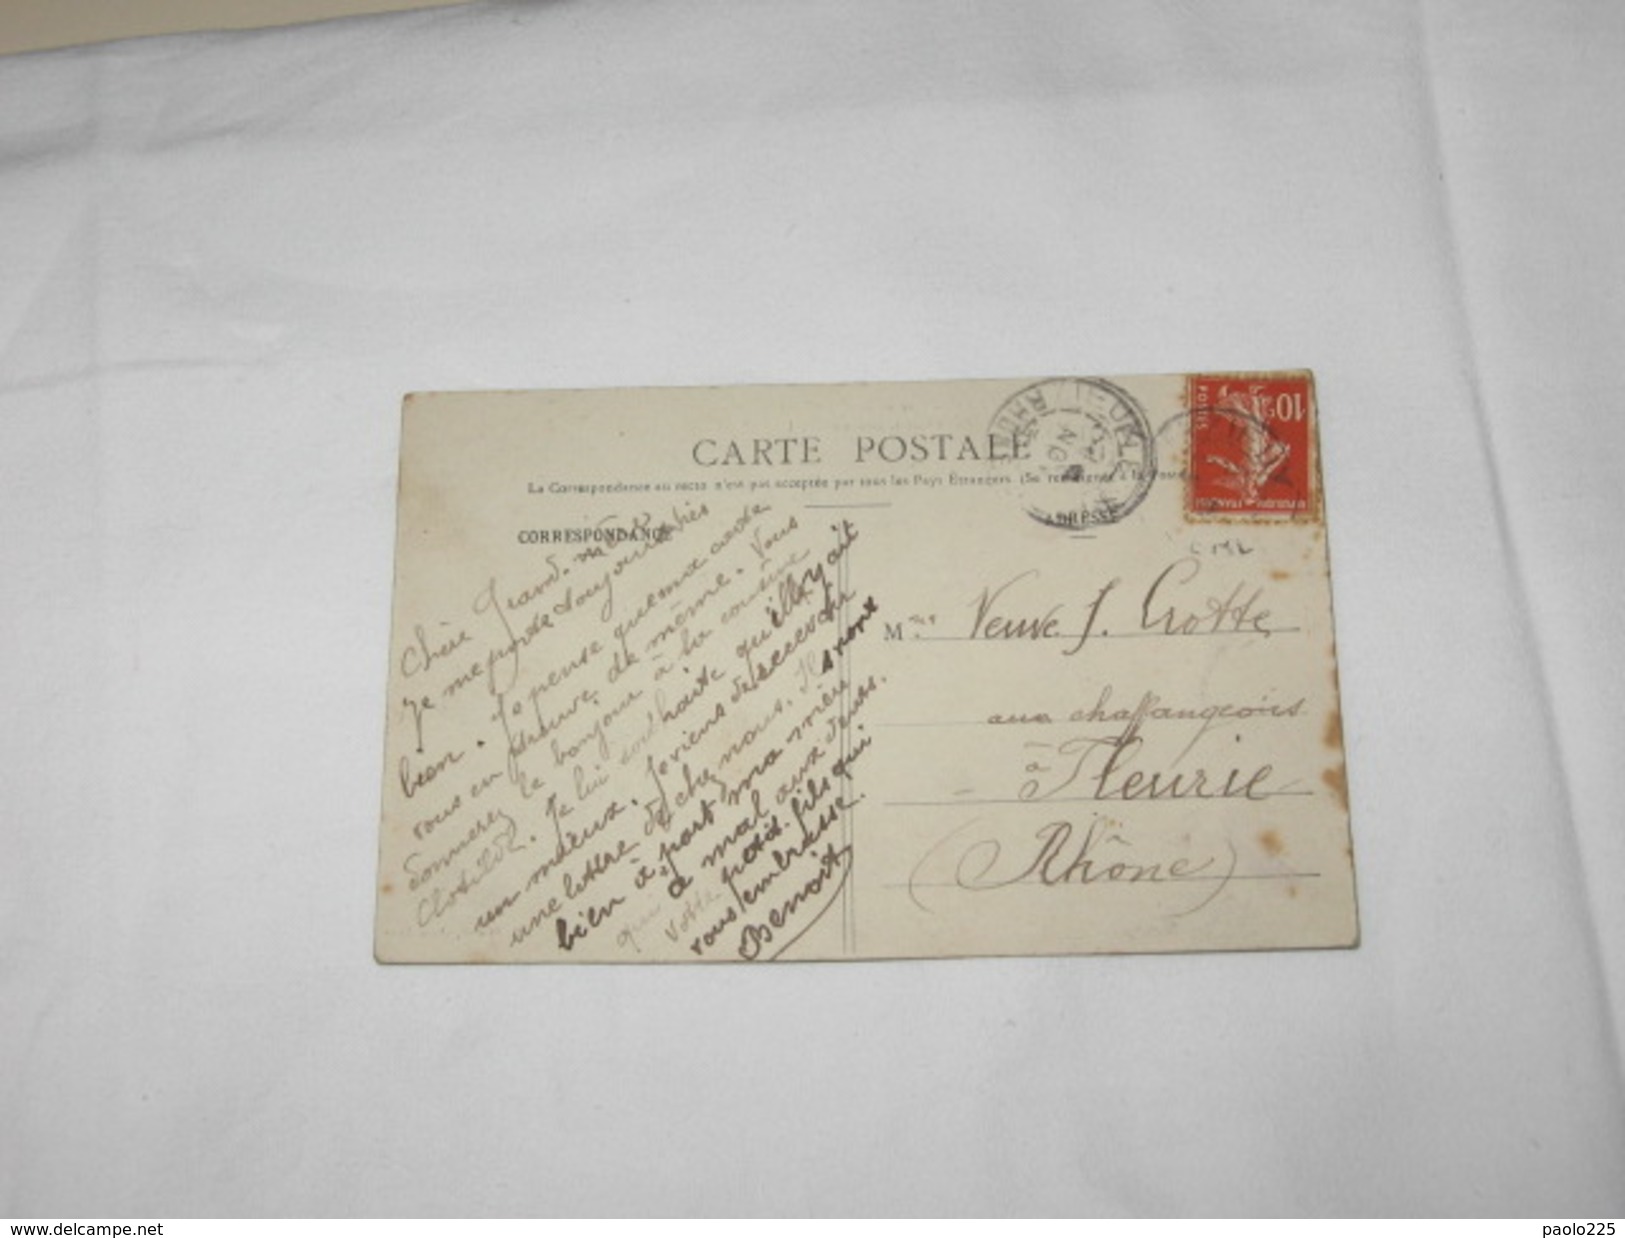 CARTE POSTALE
La Correspondance au recto n'est pas acceptée par tous les Pays Étrangers (Se renseigner à la Poste)
CORRESPONDANCE
ADRESSE
Chère Grand-mère
je me porte toujours très
bien. Je pense que ma carte
vous en trouve de même. Vous
donnerez le bonjour à la cousine
Clotilde. Je lui souhaite qu'elle y ait
un mieux. Je viens de recevoir
une lettre de chez nous. Ils vont
bien à part ma mère
qui a mal aux dents.
Votre petit-fils qui
vous embrasse.
Benoit
Mme Veuve J. Crotte
aux chaffangeons
à Fleurie
(Rhône)
10
POSTES
www.delcampe.net
paolo225